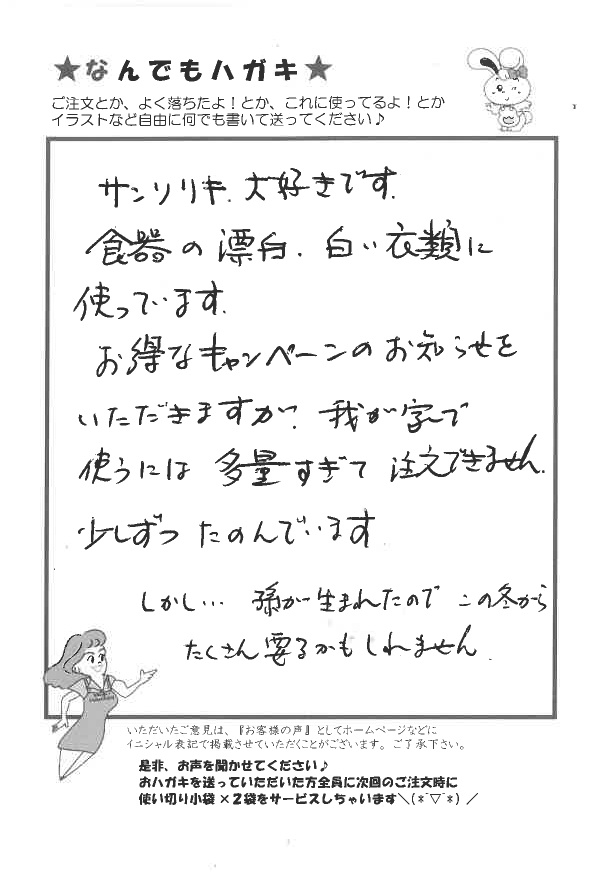 ★なんでもハガキ★
ご注文とか、よく落ちたよ！とか、これに使ってるよ！とか
イラストなど自由に何でも書いて送ってください♪
サンソリキ、大好きです。
食器の漂白、白い衣類に
使っています。
お得なキャンペーンのお知らせを
いただきますが、我が家で
使うには多量すぎて注文できません。
少しずつたのんでいます
しかし… 孫が生まれたのでこの冬から
たくさん要るかもしれません。
いただいたご意見は、『お客様の声』としてホームページなどに
イニシャル表記で掲載させていただくことがございます。ご了承下さい。
是非、お声を聞かせてください♪
おハガキを送っていただいた方全員に次回のご注文時に
使い切り小袋×２袋をサービスしちゃいます＼(*¯▽¯*)／